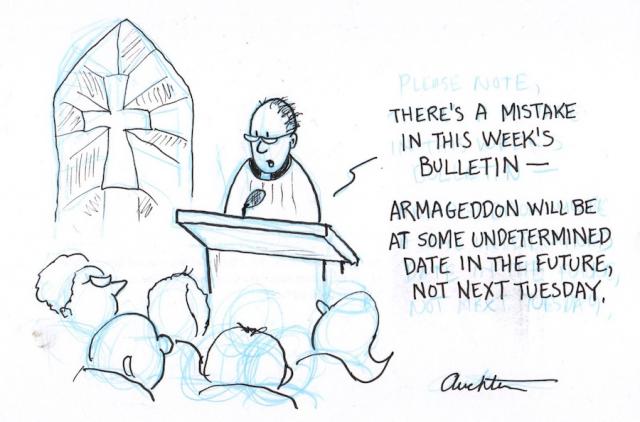 PLEASE NOTE,
THERE'S A MISTAKE
IN THIS WEEK'S
BULLETIN—
ARMAGEDDON WILL BE
AT SOME UNDETERMINED
DATE IN THE FUTURE,
NOT NEXT TUESDAY.
Auchter